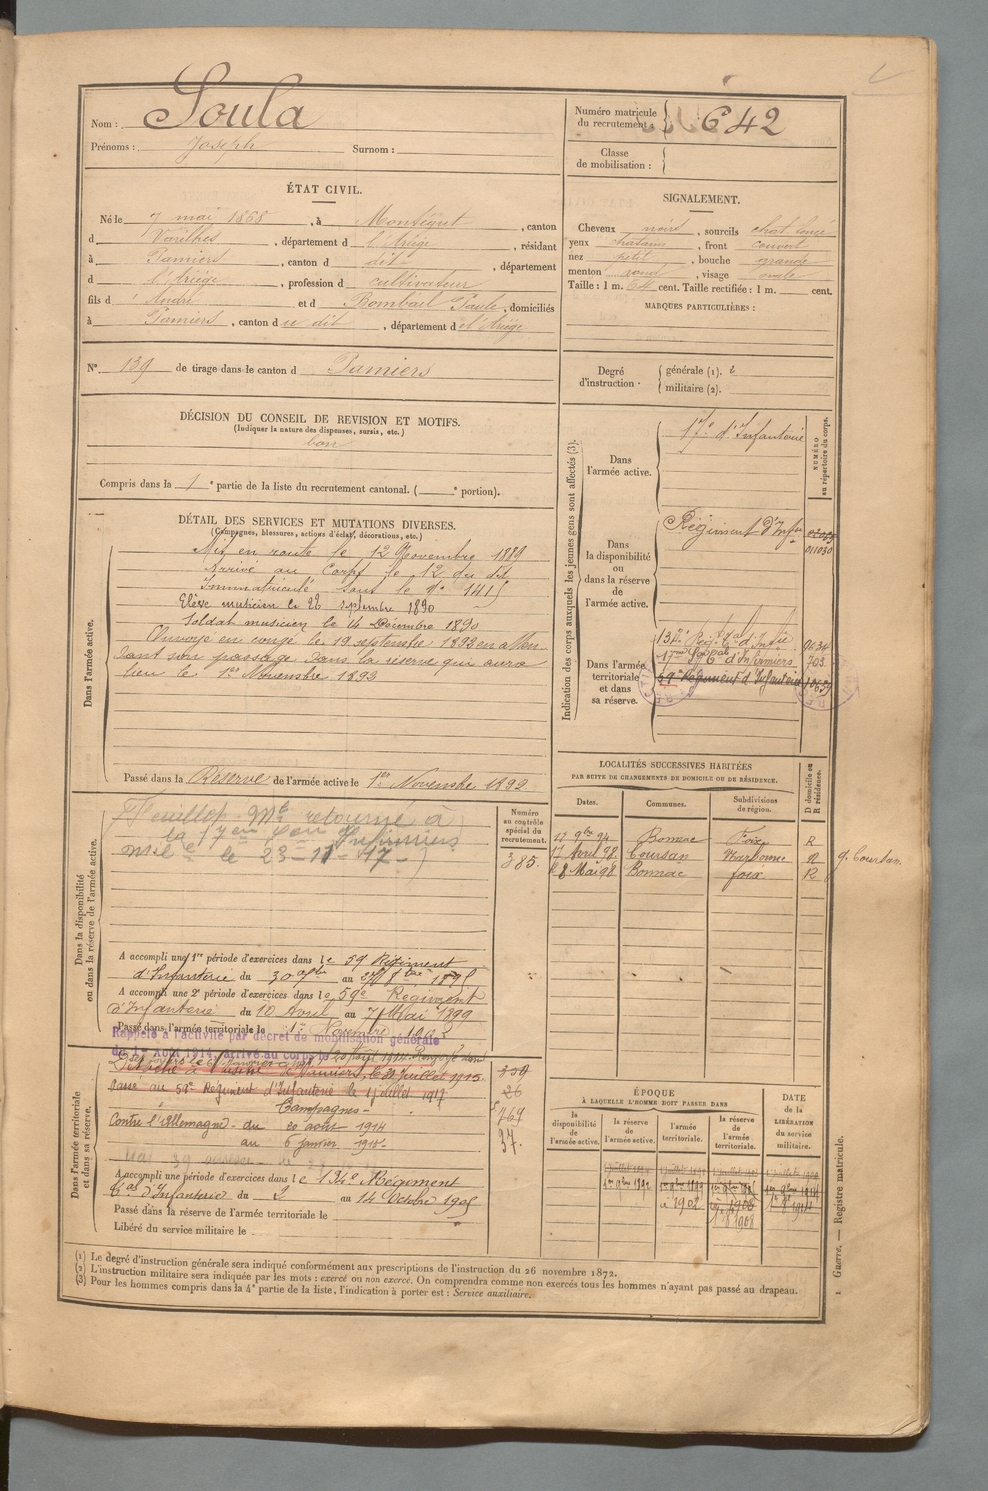 Nom : Soula
Prénoms : Joseph Surnom :
Numéro matricule
du recrutement : 642
Classe
de mobilisation :
ÉTAT CIVIL.
Né le 7 mai 1868, à Montégut, canton
d Varilhes, département d l'Ariège, résidant
à Pamiers, canton d dit, département
d l'Ariège, profession d cultivateur
fils d' André et d Bombail Paule, domiciliés
à Pamiers, canton du dit, département de l'Ariège
SIGNALEMENT.
Cheveux noirs, sourcils chat. foncé
yeux chatains, front couvert
nez petit, bouche grande
menton rond, visage ovale
Taille : 1 m. 64 cent. Taille rectifiée : 1 m. cent.
MARQUES PARTICULIÈRES :
N° 139 de tirage dans le canton d Pamiers
Degré
d'instruction
générale (1). 2
militaire (2).
DÉCISION DU CONSEIL DE REVISION ET MOTIFS.
(Indiquer la nature des dispenses, sursis, etc.)
bon
Compris dans la 1e partie de la liste du recrutement cantonal. ( e portion).
DÉTAIL DES SERVICES ET MUTATIONS DIVERSES.
(Campagnes, blessures, actions d'éclat, décorations, etc.)
Dans l'armée active.
Mis en route le 12 Novembre 1889
Arrivé au Corps le 12 du dit
Immatriculé sous le N° 1415
Elève musicien le 26 septembre 1890
Soldat musicien le 14 Décembre 1890
Envoyé en congé le 19 septembre 1892 en atten
dant son passage dans la réserve qui aura
lieu le 1er Novembre 1893
Passé dans la Réserve de l'armée active le 1er Novembre 1892
Indication des corps auxquels les jeunes gens sont affectés (3).
NUMÉRO
au répertoire du corps.
Dans
l'armée active.
17e d'Infanterie
Dans
la disponibilité
ou
dans la réserve
de
l'armée active.
Régiment d'Infie
011030
Dans l'armée
territoriale
et dans
sa réserve.
134e Régt Tal d'Infie
17me d'Infirmiers 703
59e Régiment d'Infanterie
LOCALITÉS SUCCESSIVES HABITÉES
PAR SUITE DE CHANGEMENTS DE DOMICILE OU DE RÉSIDENCE.
Dates. Communes. Subdivisions
de région. D domicile ou
R résidence.
17 9bre 94 Bonnac Foix R
17 Avril 98 Coursan Narbonne R g. Coursan
8 Mai 98 Bonnac foix R
Dans la disponibilité
ou dans la réserve de l'armée active.
Numéro
au contrôle
spécial du
recrutement.
385.
Feuillet Mle retourné à
la 17em Son Infirmiers
le 23-11-17
A accompli une 1re période d'exercices dans le 59 Régiment
d'Infanterie du 30 au
A accompli une 2e période d'exercices dans le 59e Régiment
d'Infanterie du 10 Avril au 7 Mai 1899
Passé dans l'armée territoriale le 1er Novembre 1902
Rappelé à l'activité par décret de mobilisation générale
du 1er Août 1914, arrivé au corps le 20 Aout 1914
Dans l'armée territoriale
et dans sa réserve.
Détaché à l'usine de Pamiers, le 31 Juillet 1915.
Passé au 59e Régiment d'Infanterie le 1er juillet 1917
Campagnes -
Contre l'Allemagne - du 20 août 1914
au 6 janvier 1915
769
A accompli une période d'exercices dans le 134e Régiment
Tal d'Infanterie du 2 au 14 Octobre 1905
Passé dans la réserve de l'armée territoriale le
Libéré du service militaire le
ÉPOQUE
À LAQUELLE L'HOMME DOIT PASSER DANS
la
disponibilité
de
l'armée active.
la réserve
de
l'armée active.
l'armée
territoriale.
la réserve
de
l'armée
territoriale.
DATE
de la
LIBÉRATION
du service
militaire.
1er 9bre 1892
1902 1908
(1) Le degré d'instruction générale sera indiqué conformément aux prescriptions de l'instruction du 26 novembre 1872.
(2) L'instruction militaire sera indiquée par les mots : exercé ou non exercé. On comprendra comme non exercés tous les hommes n'ayant pas passé au drapeau.
(3) Pour les hommes compris dans la 4e partie de la liste, l'indication à porter est : Service auxiliaire.
1 Guerre. — Registre matricule.